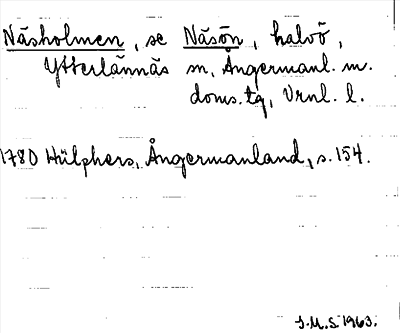 Näsholmen, se Näsön, halvö,
Ytterlännäs sn, Ångermanl. m.
doms.tg, Vrnl. l.
1780 Hülphers, Ångermanland, s. 154.
J.M.S 1963.